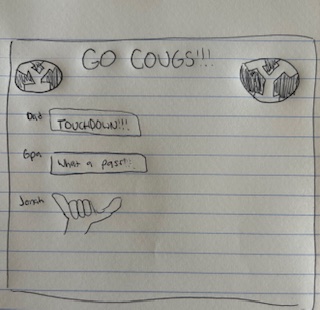 GO COUGS!!!
Dad
TOUCHDOWN!!!
Gpa
What a pass!!!
Jonah